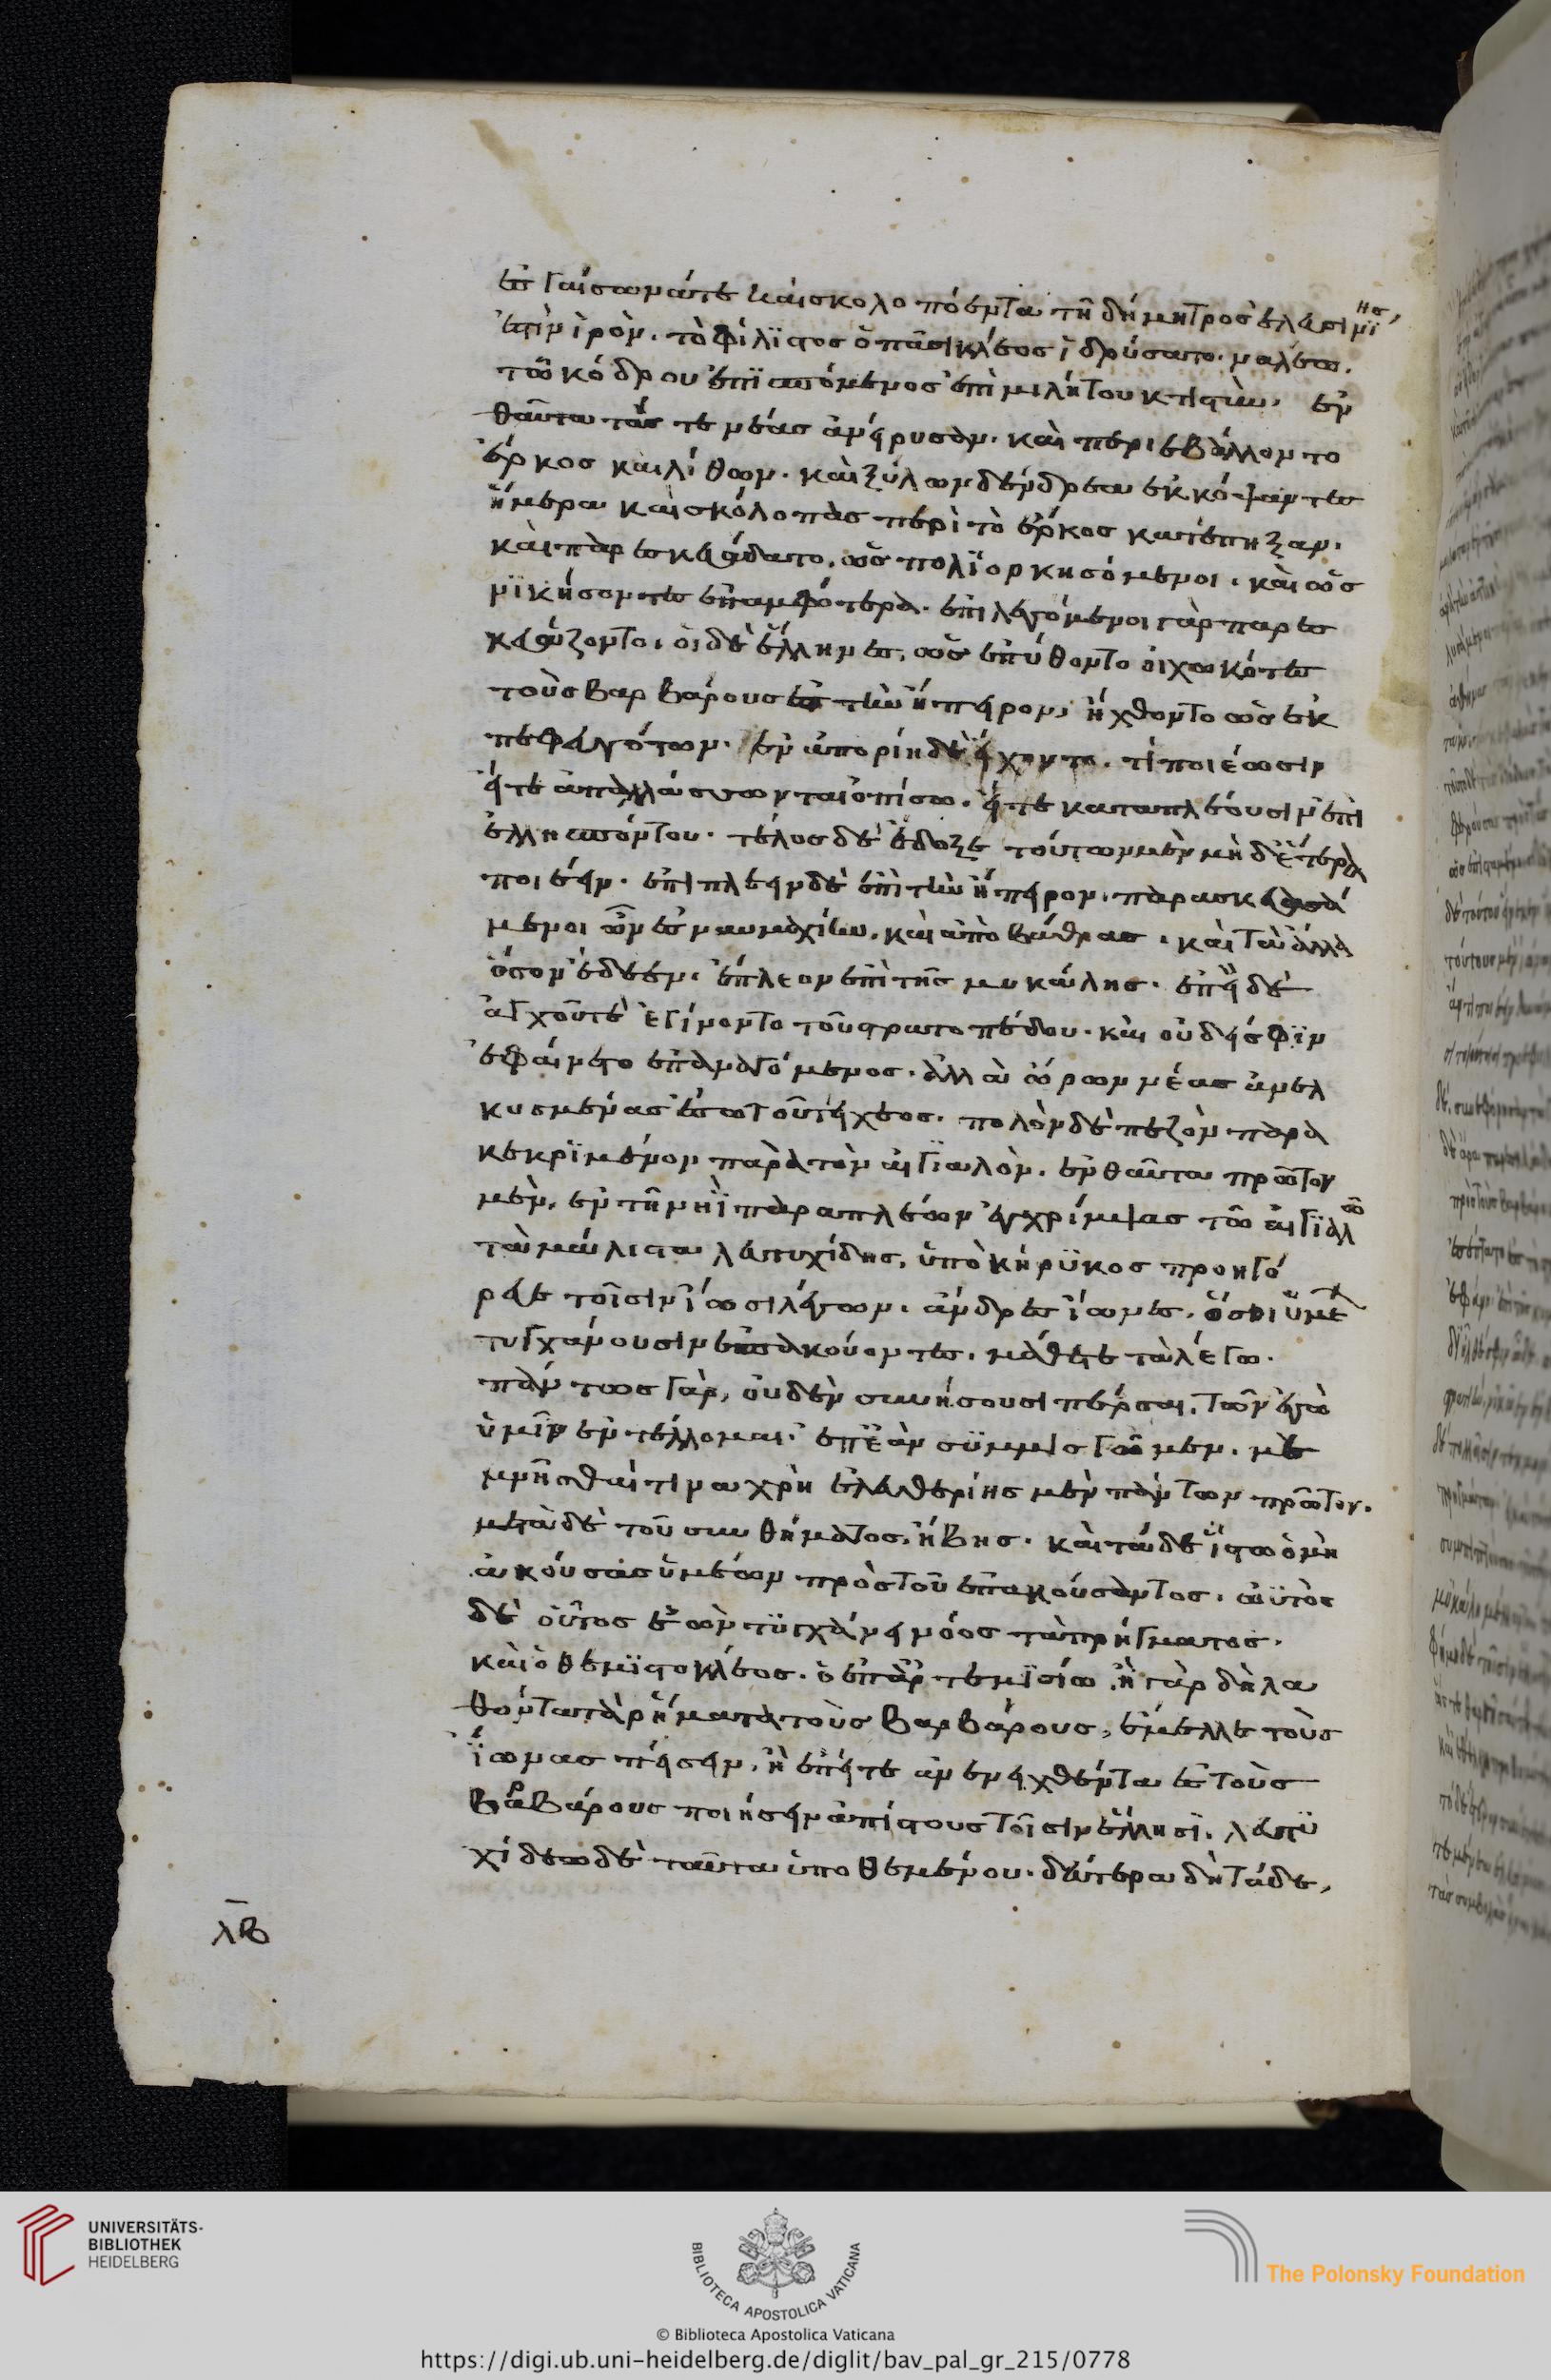 ἐς γαίσωνά τε καὶ σκολοπόεντα τῆ δήμητρος ἐλευσινίης
ἐστὶν ἱρὸν. τὸ φίλιστος ὁ πασικλέος ἱδρύσατο. νηλέω.
τῶ κόδρου ἐπισπόμενος ἐπὶ μιλήτου κτιστὺν. ἐν
θαῦτα τάς τε νέας ἀνείρυσαν. καὶ περιεβάλλοντο
ἕρκος καὶ λίθων. καὶ ξύλων δένδρεα ἐκκόψαντες
ἥμερα καὶ σκόλοπας περὶ τὸ ἕρκος κατέπηξαν.
καὶ παρεσκευάδατο. ὡς πολιορκησόμενοι. καὶ ὡς
νικήσοντες ἐπαμφότερα. ἐπιλεγόμενοι γὰρ παρεσ
κευάζοντο. οἱ δὲ ἕλληνες, ὡς ἐπύθοντο οἰχωκότας
τοὺς βαρβάρους ἐς τὴν ἤπειρον, ἤχθοντο ὡς ἐκ
πεφευγότων. ἐν ἀπορίη δὲ εἴχοντο. τί ποιέωσιν
εἴτε ἀπαλλάσσωνται ὀπίσω. εἴτε καταπλέουσιν ἐπὶ
ἑλλησπόντου. τέλος δὲ ἔδοξε τούτων μὲν μηδέτερα
ποιέειν. ἐπιπλέειν δὲ ἐπὶ τὴν ἤπειρον. παρασκευασά
μενοι ὦν ἐς ναυμαχίην. καὶ ἀποβάθρας. καὶ τὰ ἄλλα
ὅσων ἔδεεν. ἔπλεον ἐπὶ τῆς μυκάλης. ἐπεὶ δὲ
ἀγχοῦ τὲ ἐγίνοντο τοῦ στρατοπέδου. καὶ οὐδεὶς σφιν
ἐφαίνετο ἐπαναγόμενος. ἀλλὰ ὥρων νέας ἀνελ
κυσμένας ἔσω τοῦ τείχεος. πολὸν δὲ πεζὸν παρα
κεκριμένον παρὰ τὸν αἰγιαλὸν. ἐνθαῦτα πρῶτον
μὲν. ἐν τῆ νηῒ παραπλέων ἐγχρίμψας τῶ αἰγιαλῶ
τὰ μάλιστα λευτυχίδης. ὑπὸ κήρυκος προηγό
ρευε τοῖσιν ἴωσι λέγων. ἄνδρες ἴωνες. ὅσοι ὑμέων
τυγχάνουσιν ἐπακούοντες. μάθετε τὰ λέγω.
πάντως γὰρ, οὐδὲν συνήσουσι πέρσαι. τῶν ἐγὼ
ὑμῖν ἐντέλλομαι. ἐπεὰν συμμίσγωμεν. με
μνῆσθαί τινα χρὴ ἐλευθερίης μὲν πάντων πρῶτον.
μετὰ δὲ τοῦ συνθήματος, ἥβης. καὶ τάδε ἴστω ὁ μὴ
ἀκούσας ὑμέων πρὸς τοῦ ἐπακούσαντος. ωὑτὸς
δὲ οὗτος ἐὼν τυγχάνει νόος τοῦ πρήγματος.
καὶ ὁ θεμιστοκλέος. ὁ ἐπ' ἀρτεμισίω. ἢ γὰρ δὴ λα
θόντα τὰ ῥήματα τοὺς βαρβάρους, ἔμελλε τοὺς
ἴωνας πείσειν. ἢ ἔπειτε ἀνενειχθέντα ἐς τοὺς
βαρβάρους ποιήσειν ἀπίστους τοῖσιν ἕλλησι. λευτυ
χίδεω δὲ ταῦτα ὑποθεμένου. δεύτερα δὴ τάδε,
λβ
UNIVERSITÄTS-
BIBLIOTHEK
HEIDELBERG
BIBLIOTECA APOSTOLICA VATICANA
The Polonsky Foundation
© Biblioteca Apostolica Vaticana
https://digi.ub.uni-heidelberg.de/diglit/bav_pal_gr_215/0778